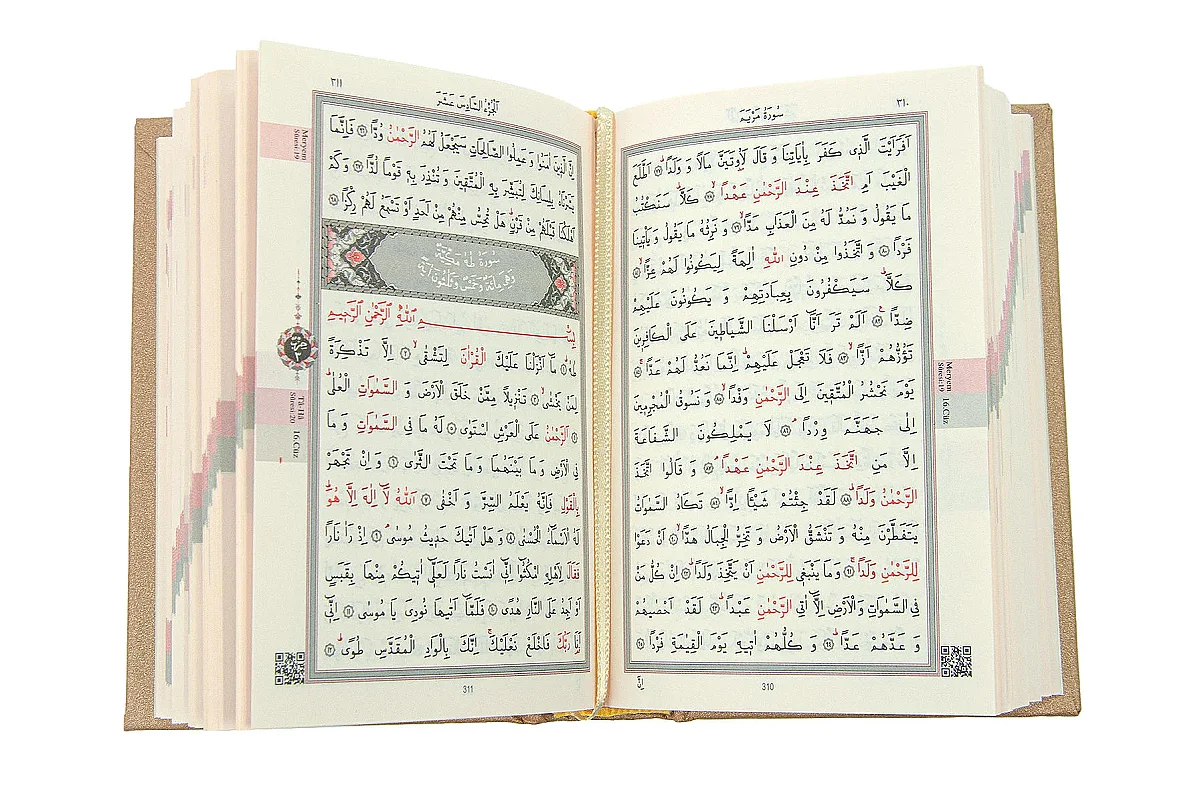 ٣١٠
سُورَةُ مَرْيَمَ
اَفَرَاَيْتَ الَّذٖى كَفَرَ بِاٰيَاتِنَا وَ قَالَ لَاُوتَيَنَّ مَالاً وَ وَلَدًاؕ ﴿٧٧﴾ اَطَّلَعَ
الْغَيْبَ اَمِ اتَّخَذَ عِنْدَ الرَّحْمٰنِ عَهْدًاۙ ﴿٧٨﴾ كَلَّاؕ سَنَكْتُبُ
مَا يَقُولُ وَ نَمُدُّ لَهُ مِنَ الْعَذَابِ مَدًّاۙ ﴿٧٩﴾ وَ نَرِثُهُ مَا يَقُولُ وَ يَاْتٖينَا
فَرْدًا ﴿٨٠﴾ وَ اتَّخَذُوا مِنْ دُونِ اللّٰهِ اٰلِهَةً لِيَكُونُوا لَهُمْ عِزًّاۙ ﴿٨١﴾
كَلَّاؕ سَيَكْفُرُونَ بِعِبَادَتِهِمْ وَ يَكُونُونَ عَلَيْهِمْ
ضِدًّاࣖ ﴿٨٢﴾ اَلَمْ تَرَ اَنَّٓا اَرْسَلْنَا الشَّيَاطٖينَ عَلَى الْكَافِرٖينَ
تَؤُزُّهُمْ اَزًّاۙ ﴿٨٣﴾ فَلَا تَعْجَلْ عَلَيْهِمْؕ اِنَّمَا نَعُدُّ لَهُمْ عَدًّاۚ ﴿٨٤﴾
يَوْمَ نَحْشُرُ الْمُتَّقٖينَ اِلَى الرَّحْمٰنِ وَفْدًاۙ ﴿٨٥﴾ وَ نَسُوقُ الْمُجْرِمٖينَ
اِلٰى جَهَنَّمَ وِرْدًاۘ ﴿٨٦﴾ لَا يَمْلِكُونَ الشَّفَاعَةَ
اِلَّا مَنِ اتَّخَذَ عِنْدَ الرَّحْمٰنِ عَهْدًاۘ ﴿٨٧﴾ وَ قَالُوا اتَّخَذَ
الرَّحْمٰنُ وَلَدًاؕ ﴿٨٨﴾ لَقَدْ جِئْتُمْ شَيْـًٔا اِدًّاۙ ﴿٨٩﴾ تَكَادُ السَّمٰوَاتُ
يَتَفَطَّرْنَ مِنْهُ وَ تَنْشَقُّ الْاَرْضُ وَ تَخِرُّ الْجِبَالُ هَدًّاۙ ﴿٩٠﴾ اَنْ دَعَوْا
لِلرَّحْمٰنِ وَلَدًاۚ ﴿٩١﴾ وَ مَا يَنْبَغٖى لِلرَّحْمٰنِ اَنْ يَتَّخِذَ وَلَدًاؕ ﴿٩٢﴾ اِنْ كُلُّ مَنْ
فِى السَّمٰوَاتِ وَ الْاَرْضِ اِلَّٓا اٰتِى الرَّحْمٰنِ عَبْدًاؕ ﴿٩٣﴾ لَقَدْ اَحْصٰيهُمْ
وَ عَدَّهُمْ عَدًّاؕ ﴿٩٤﴾ وَ كُلُّهُمْ اٰتٖيهِ يَوْمَ الْقِيٰمَةِ فَرْدًا ﴿٩٥﴾
اِنَّ
310
Meryem
Sûresi:19
16.Cüz
٣١١
اَلْجُزْءُ السَّادِسَ عَشَرَ
اِنَّ الَّذٖينَ اٰمَنُوا وَ عَمِلُوا الصَّالِحَاتِ سَيَجْعَلُ لَهُمُ الرَّحْمٰنُ وُدًّا ﴿٩٦﴾ فَاِنَّمَا
يَسَّرْنَاهُ بِلِسَانِكَ لِتُبَشِّرَ بِهِ الْمُتَّقٖينَ وَ تُنْذِرَ بِهٖ قَوْمًا لُدًّا ﴿٩٧﴾ وَ كَمْ
اَهْلَكْنَا قَبْلَهُمْ مِنْ قَرْنٍؕ هَلْ تُحِسُّ مِنْهُمْ مِنْ اَحَدٍ اَوْ تَسْمَعُ لَهُمْ رِكْزًا ﴿٩٨﴾
سُورَةُ طٰهٰ مَكِّيَّةٌ
وَهِىَ مِائَةٌ وَخَمْسٌ وَثَلٰثُونَ اٰيَةً
بِسْمِ اللّٰهِ الرَّحْمٰنِ الرَّحٖيمِ
طٰهٰۚ ﴿١﴾ مَٓا اَنْزَلْنَا عَلَيْكَ الْقُرْاٰنَ لِتَشْقٰىۙ ﴿٢﴾ اِلَّا تَذْكِرَةً
لِمَنْ يَخْشٰىۙ ﴿٣﴾ تَنْزٖيلاً مِمَّنْ خَلَقَ الْاَرْضَ وَ السَّمٰوَاتِ الْعُلٰىؕ
﴿٤﴾ اَلرَّحْمٰنُ عَلَى الْعَرْشِ اسْتَوٰى ﴿٥﴾ لَهُ مَا فِى السَّمٰوَاتِ وَ مَا
فِى الْاَرْضِ وَ مَا بَيْنَهُمَا وَ مَا تَحْتَ الثَّرٰى ﴿٦﴾ وَ اِنْ تَجْهَرْ
بِالْقَوْلِ فَاِنَّهُ يَعْلَمُ السِّرَّ وَ اَخْفٰى ﴿٧﴾ اَللّٰهُ لَٓا اِلٰهَ اِلَّا هُوَؕ
لَهُ الْاَسْمَٓاءُ الْحُسْنٰى ﴿٨﴾ وَ هَلْ اَتٰيكَ حَدٖيثُ مُوسٰىۘ ﴿٩﴾ اِذْ رَاٰ نَارًا
فَقَالَ لِاَهْلِهِ امْكُثُٓوا اِنّٖٓى اٰنَسْتُ نَارًا لَعَلّٖٓى اٰتٖيكُمْ مِنْهَا بِقَبَسٍ
اَوْ اَجِدُ عَلَى النَّارِ هُدًى ﴿١٠﴾ فَلَمَّٓا اَتٰيهَا نُودِىَ يَا مُوسٰى ﴿١١﴾ اِنّٖٓى
اَنَا رَبُّكَ فَاخْلَعْ نَعْلَيْكَۚ اِنَّكَ بِالْوَادِ الْمُقَدَّسِ طُوًىؕ ﴿١٢﴾
311
Meryem
Sûresi:19
Tâ-Hâ
Sûresi:20
16.Cüz